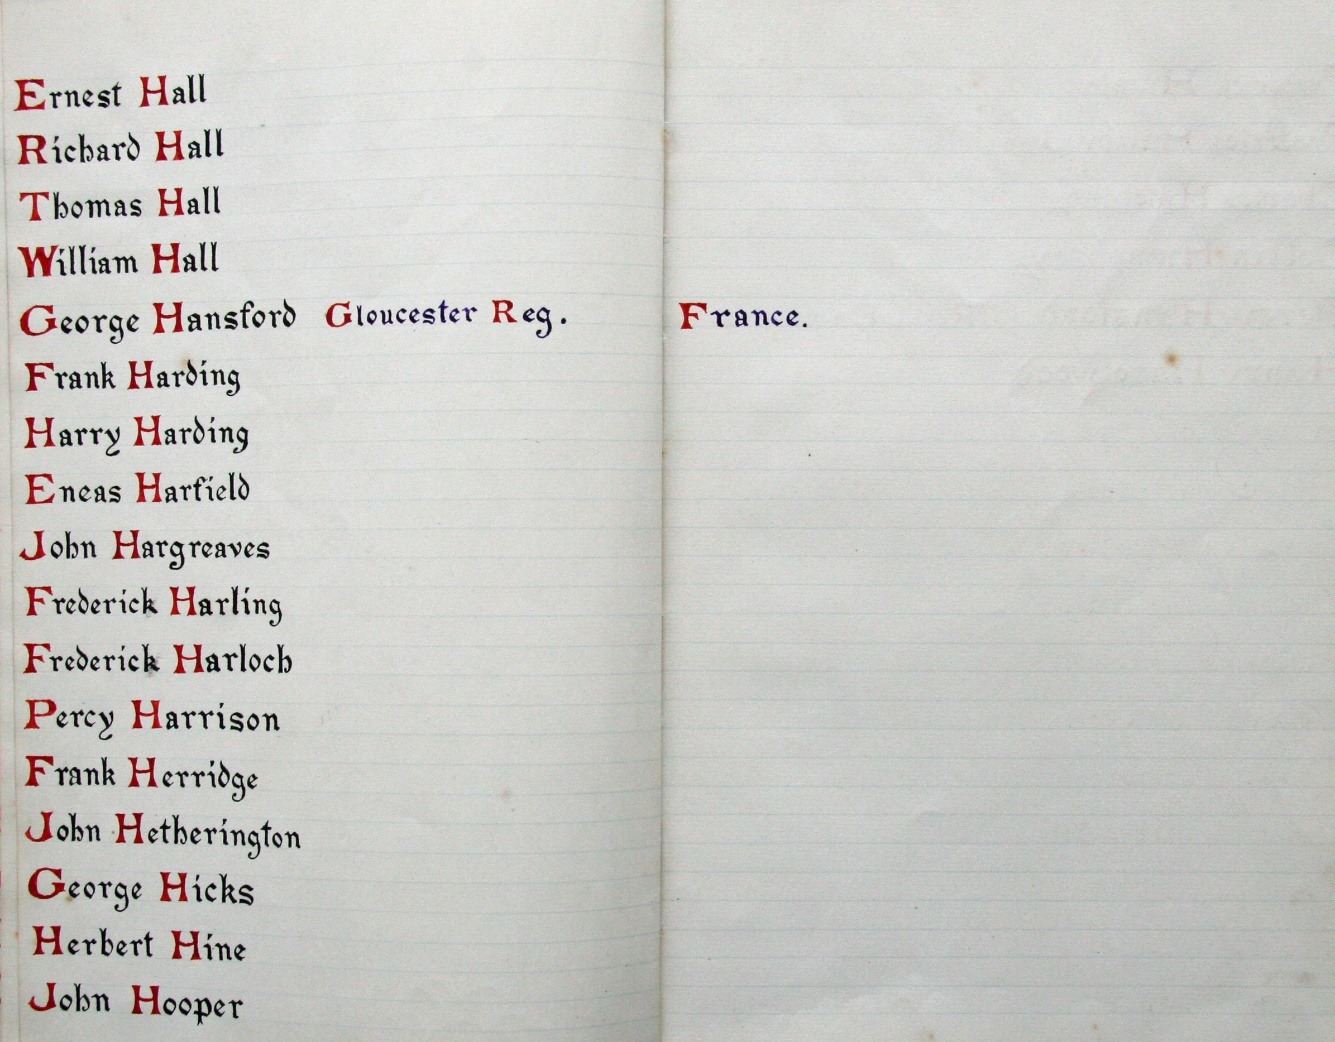 Ernest Hall
Richard Hall
Thomas Hall
William Hall
George Hansford Gloucester Reg. France.
Frank Harding
Harry Harding
Eneas Harfield
John Hargreaves
Frederick Harling
Frederick Harloch
Percy Harrison
Frank Herridge
John Hetherington
George Hicks
Herbert Hine
John Hooper